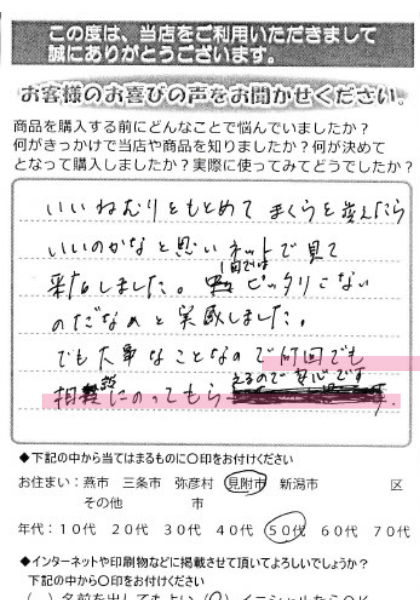 この度は、当店をご利用いただきまして
誠にありがとうございます。
お客様のお喜びの声をお聞かせください。
商品を購入する前にどんなことで悩んでいましたか？
何がきっかけで当店や商品を知りましたか？何が決めて
となって購入しましたか？実際に使ってみてどうでしたか？
いいねむりをもとめて まくらを変えたら
いいのかなと思い ネットで見て
来店しました。 1回では ピッタリこない
のだなぁと実感しました。
でも大事なことなので何回でも
相談にのってもらえるので安心です
◆下記の中から当てはまるものに〇印をお付けください
お住まい：燕市 三条市 弥彦村 見附市 新潟市 区
その他 市
年代：10代 20代 30代 40代 50代 60代 70代
◆インターネットや印刷物などに掲載させて頂いてよろしいでしょうか？
下記の中から〇印をお付けください
( )名前を出してもよい (〇)イニシャルならOK